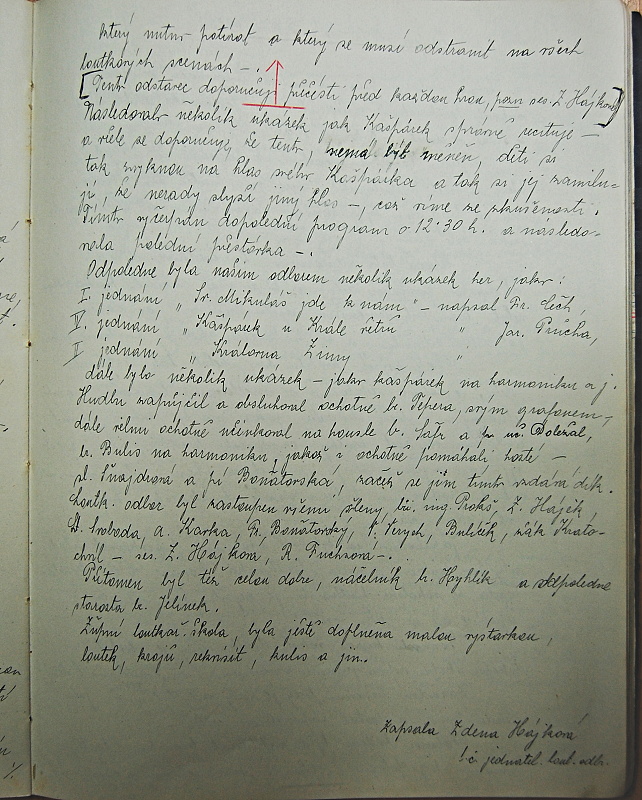 který nutno potírat a který se musí odstranit na všech
loutkových scenach –.
[Tento odstavec doporučuji přečísti před každou hrou, pozn. ses. Z. Hájkové]
Následovalo několik ukázek jak Kašpárek správně recituje –
a vřele se doporučuje, že tento, nemá být měněn, děti si
tak zvyknou na hlas svého Kašpárka a tak si jej zamilu-
jí, že nerady slyší jiný hlas –, což víme ze zkušenosti.
Tímto vyčerpán dopolední program o 12·30 h. a násled-
ovala polední přestávka –.
Odpoledne byla našim odborem několik ukázek her, jako:
I. jednání „Sv. Mikuláš jde k nám" – napsal Fr. Čech,
IV. jednání „Kašpárek u Krále větrů " Jar. Průcha,
I jednání „Královna Zimy "
dále bylo několik ukázek – jako kašpárek na harmoniku a j.
Hudbu zapůjčil a obsluhoval ochotně br. Pépera, svým grafonem –
dále velmi ochotně účinkoval na housle br. Šafr a br. uč. Doležal,
br. Bulis na harmoniku, jakož i ochotně pomáhali hosté –
sl. Šnajdrová a pí Boňatovská, začež se jim tímto vzdává dík.
Loutk. odbor byl zastoupen všemi členy, bří. ing. Prokš, Z. Hájek,
St. Svoboda, A. Karka, Fr. Boňatovský, Verych, Bulíček, žák Krato-
chvíl – ses. Z. Hájková, R. Fuchsová –.
Přítomen byl též celou dobu, náčelník br. Hyhlík a odpoledne
starosta br. Jelínek.
Župní loutkař. škola, byla ještě doplněna malou výstavkou,
loutek, krojů, rekvisit, kulis a jin..
Zapsala Zdena Hájková
t.č. jednatel. lout. odbr.